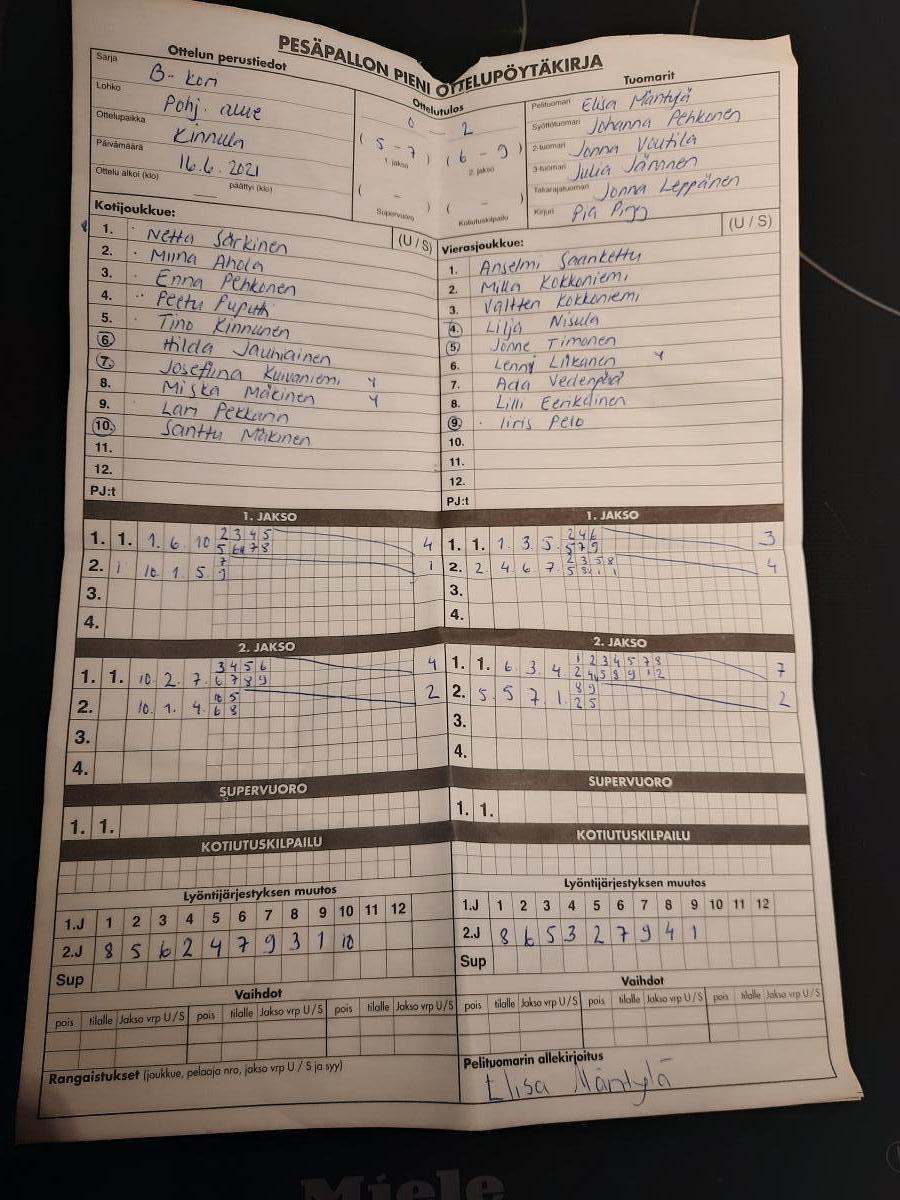 PESÄPALLON PIENI OTTELUPÖYTÄKIRJA
Ottelun perustiedot
Sarja B-kori
Lohko Pohj. alue
Ottelupaikka Kinnula
Päivämäärä 16.6.2021
Ottelu alkoi (klo) päättyi (klo)
Ottelutulos
0 - 2
(5-7) (6-9)
1. jakso 2. jakso
( - ) ( - )
Supervuoro Kotiutuskilpailu
Tuomarit
Pelituomari Elisa Mäntylä
Syöttötuomari Johanna Pehkonen
2-tuomari Jonna Voutila
3-tuomari Julia Jämnen
Takarajatuomari Jonna Leppänen
Kirjuri Pia Pigg
Kotijoukkue: (U / S)
1. Netta Särkinen
2. Miina Ahola
3. Enna Pehkonen
4. Peetu Puputti
5. Tino Kinnunen
6. Hilda Jauhiainen
7. Josefiina Kuivaniemi Y
8. Miska Mäkinen Y
9. Lari Pekkarin
10. Santtu Mäkinen
11.
12.
PJ:t
Vierasjoukkue: (U / S)
1. Anselmi Saankettu
2. Milla Kokkoniemi
3. Valtteri Kokkoniemi
4. Lilja Nisula
5. Jonne Timonen
6. Lenny Liikanen Y
7. Ada Vedenpää
8. Lilli Eerikäinen
9. Iiris Pelo
10.
11.
12.
PJ:t
1. JAKSO
1. 1. 1. 6. 10 2 3 4 5 4
5 6 7 8
2. 1 10. 1. 5. 7 1
9
3.
4.
1. JAKSO
1. 1. 1. 3. 5. 2 4 6 3
5 7 9
2. 2. 4. 6. 7. 2 3 5 8 4
5 8 1 1
3.
4.
2. JAKSO
1. 1. 10. 2. 7. 3 4 5 6 4
6 7 8 9
2. 10. 1. 4. 10 5 2
6 8
3.
4.
2. JAKSO
1. 1. 6. 3. 4. 1 2 3 4 5 7 8 7
2 4 5 8 9 1 2
2. 5 5 7. 1. 8 9 2
2 5
3.
4.
SUPERVUORO
1. 1.
SUPERVUORO
1. 1.
KOTIUTUSKILPAILU
KOTIUTUSKILPAILU
Lyöntijärjestyksen muutos
1.J 1 2 3 4 5 6 7 8 9 10 11 12
2.J 8 5 6 2 4 7 9 3 1 10
Sup
Lyöntijärjestyksen muutos
1.J 1 2 3 4 5 6 7 8 9 10 11 12
2.J 8 6 5 3 2 7 9 4 1
Sup
Vaihdot
pois tilalle Jakso vrp U/S pois tilalle Jakso vrp U/S pois tilalle Jakso vrp U/S
Vaihdot
pois tilalle Jakso vrp U/S pois tilalle Jakso vrp U/S pois tilalle Jakso vrp U/S
Rangaistukset (joukkue, pelaaja nro, jakso vrp U / S ja syy)
Pelituomarin allekirjoitus
Elisa Mäntylä
Miele